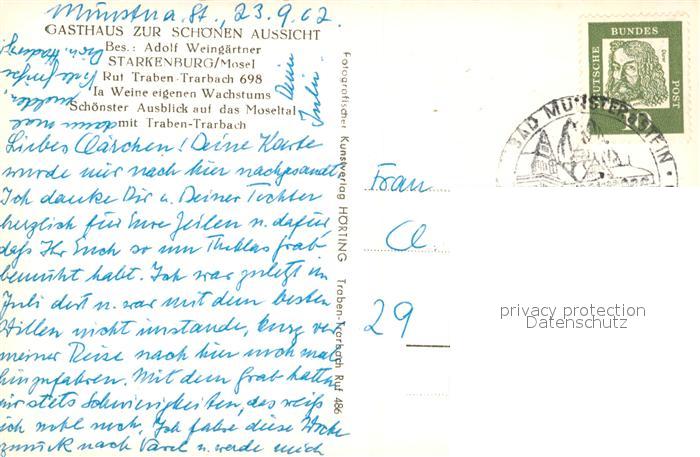 Münster a. St., 23.9.62.
GASTHAUS ZUR SCHÖNEN AUSSICHT
Bes.: Adolf Weingärtner
STARKENBURG/Mosel
Ruf Traben-Trarbach 698
Ia Weine eigenen Wachstums
Schönster Ausblick auf das Moseltal
mit Traben-Trarbach
Liebes Clärchen! Deine Karte
wurde mir nach hier nachgesandt.
Ich danke Dir u. Deiner Tochter
herzlich für Eure Zeilen u. dafür,
daß Ihr Euch so um Theklas Grab
bemüht habt. Ich war zuletzt im
Juli dort u. war mit dem besten
Willen nicht imstande, kurz vor
meiner Reise nach hier noch mal
hinzufahren. Mit dem Grab hatten
wir stets Schwierigkeiten, das weiß
ich wohl noch. Ich fahre diese Woche
zurück nach Varel u. werde mich
dann mal
melden.
Viele Grüße
Deine
Julie.
Fotografischer Kunstverlag HÖRTING Traben-Trarbach Ruf 486
DEUTSCHE
BUNDES
POST
10
BAD MÜNSTER STEIN
Frau
C.
29
privacy protection
Datenschutz